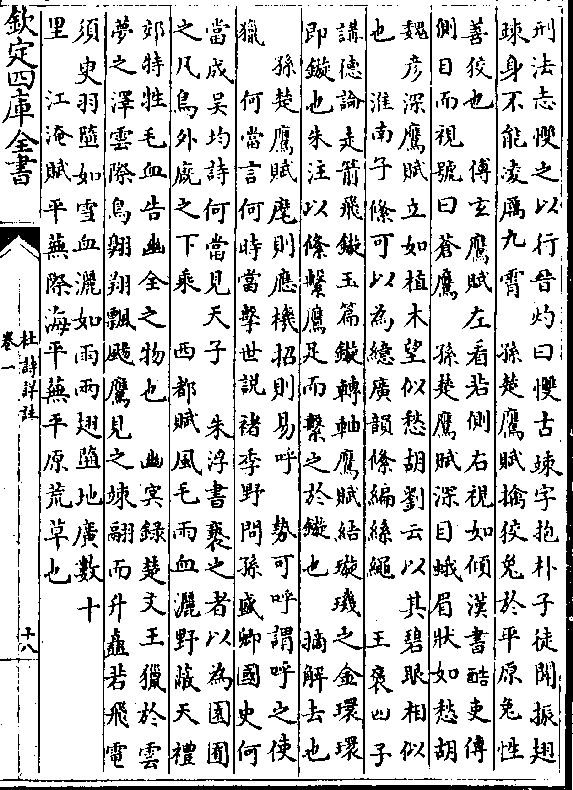 刑法志㦼之以行晉灼曰㦼古竦字抱朴子徒閒振翅
竦身不能凌厲九霄　孫楚鷹賦擒狡兔於平原兔性
善狡也　傅玄鷹賦左看若側右視如傾漢書酷吏傳
側目而視號曰蒼鷹　孫楚鷹賦深目蛾眉狀如愁胡
魏彦深鷹賦立如植木望似愁胡劉云以其碧眼相似
也　淮南子絛可以為繶廣韻絛編絲繩　王褒四子
講德論走箭飛鏇玉篇鏇轉軸鷹賦結璇璣之金環環
即鏇也朱注以絛繫鷹足而繫之於鏇也　摘解去也
孫楚鷹賦麾則應機招則易呼　勢可呼謂呼之使
獵　何當言何時當擊世説褚季野問孫盛卿國史何
當成吴均詩何當見天子　朱浮書褒之者以為園囿
之凡鳥外廐之下乘　西都賦風毛雨血灑野蔽天禮
郊特牲毛血告幽全之物也　幽冥録楚文王獵於雲
夢之澤雲際鳥翱翔飄颺鷹見之竦翮而升矗若飛電
須臾羽墮如雪血灑如雨兩翅墮地廣數十
里　江淹賦平蕪際海平蕪平原荒草也
欽定四庫全書
杜詩詳註
卷一
十八